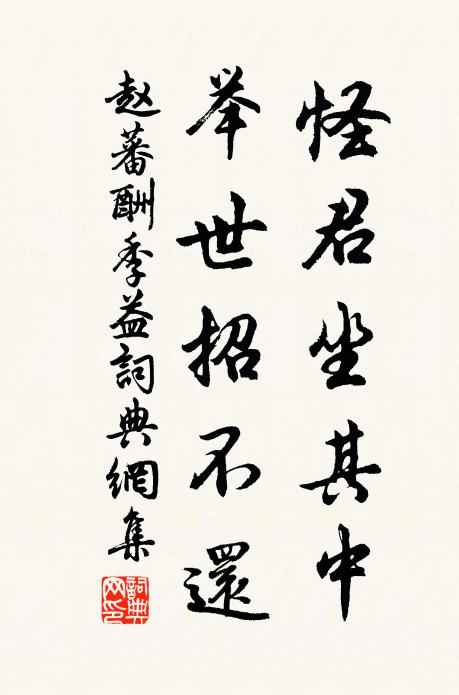 怪君坐其中
举世招不還
赵蕃酬季益詞典網集
詞典网印